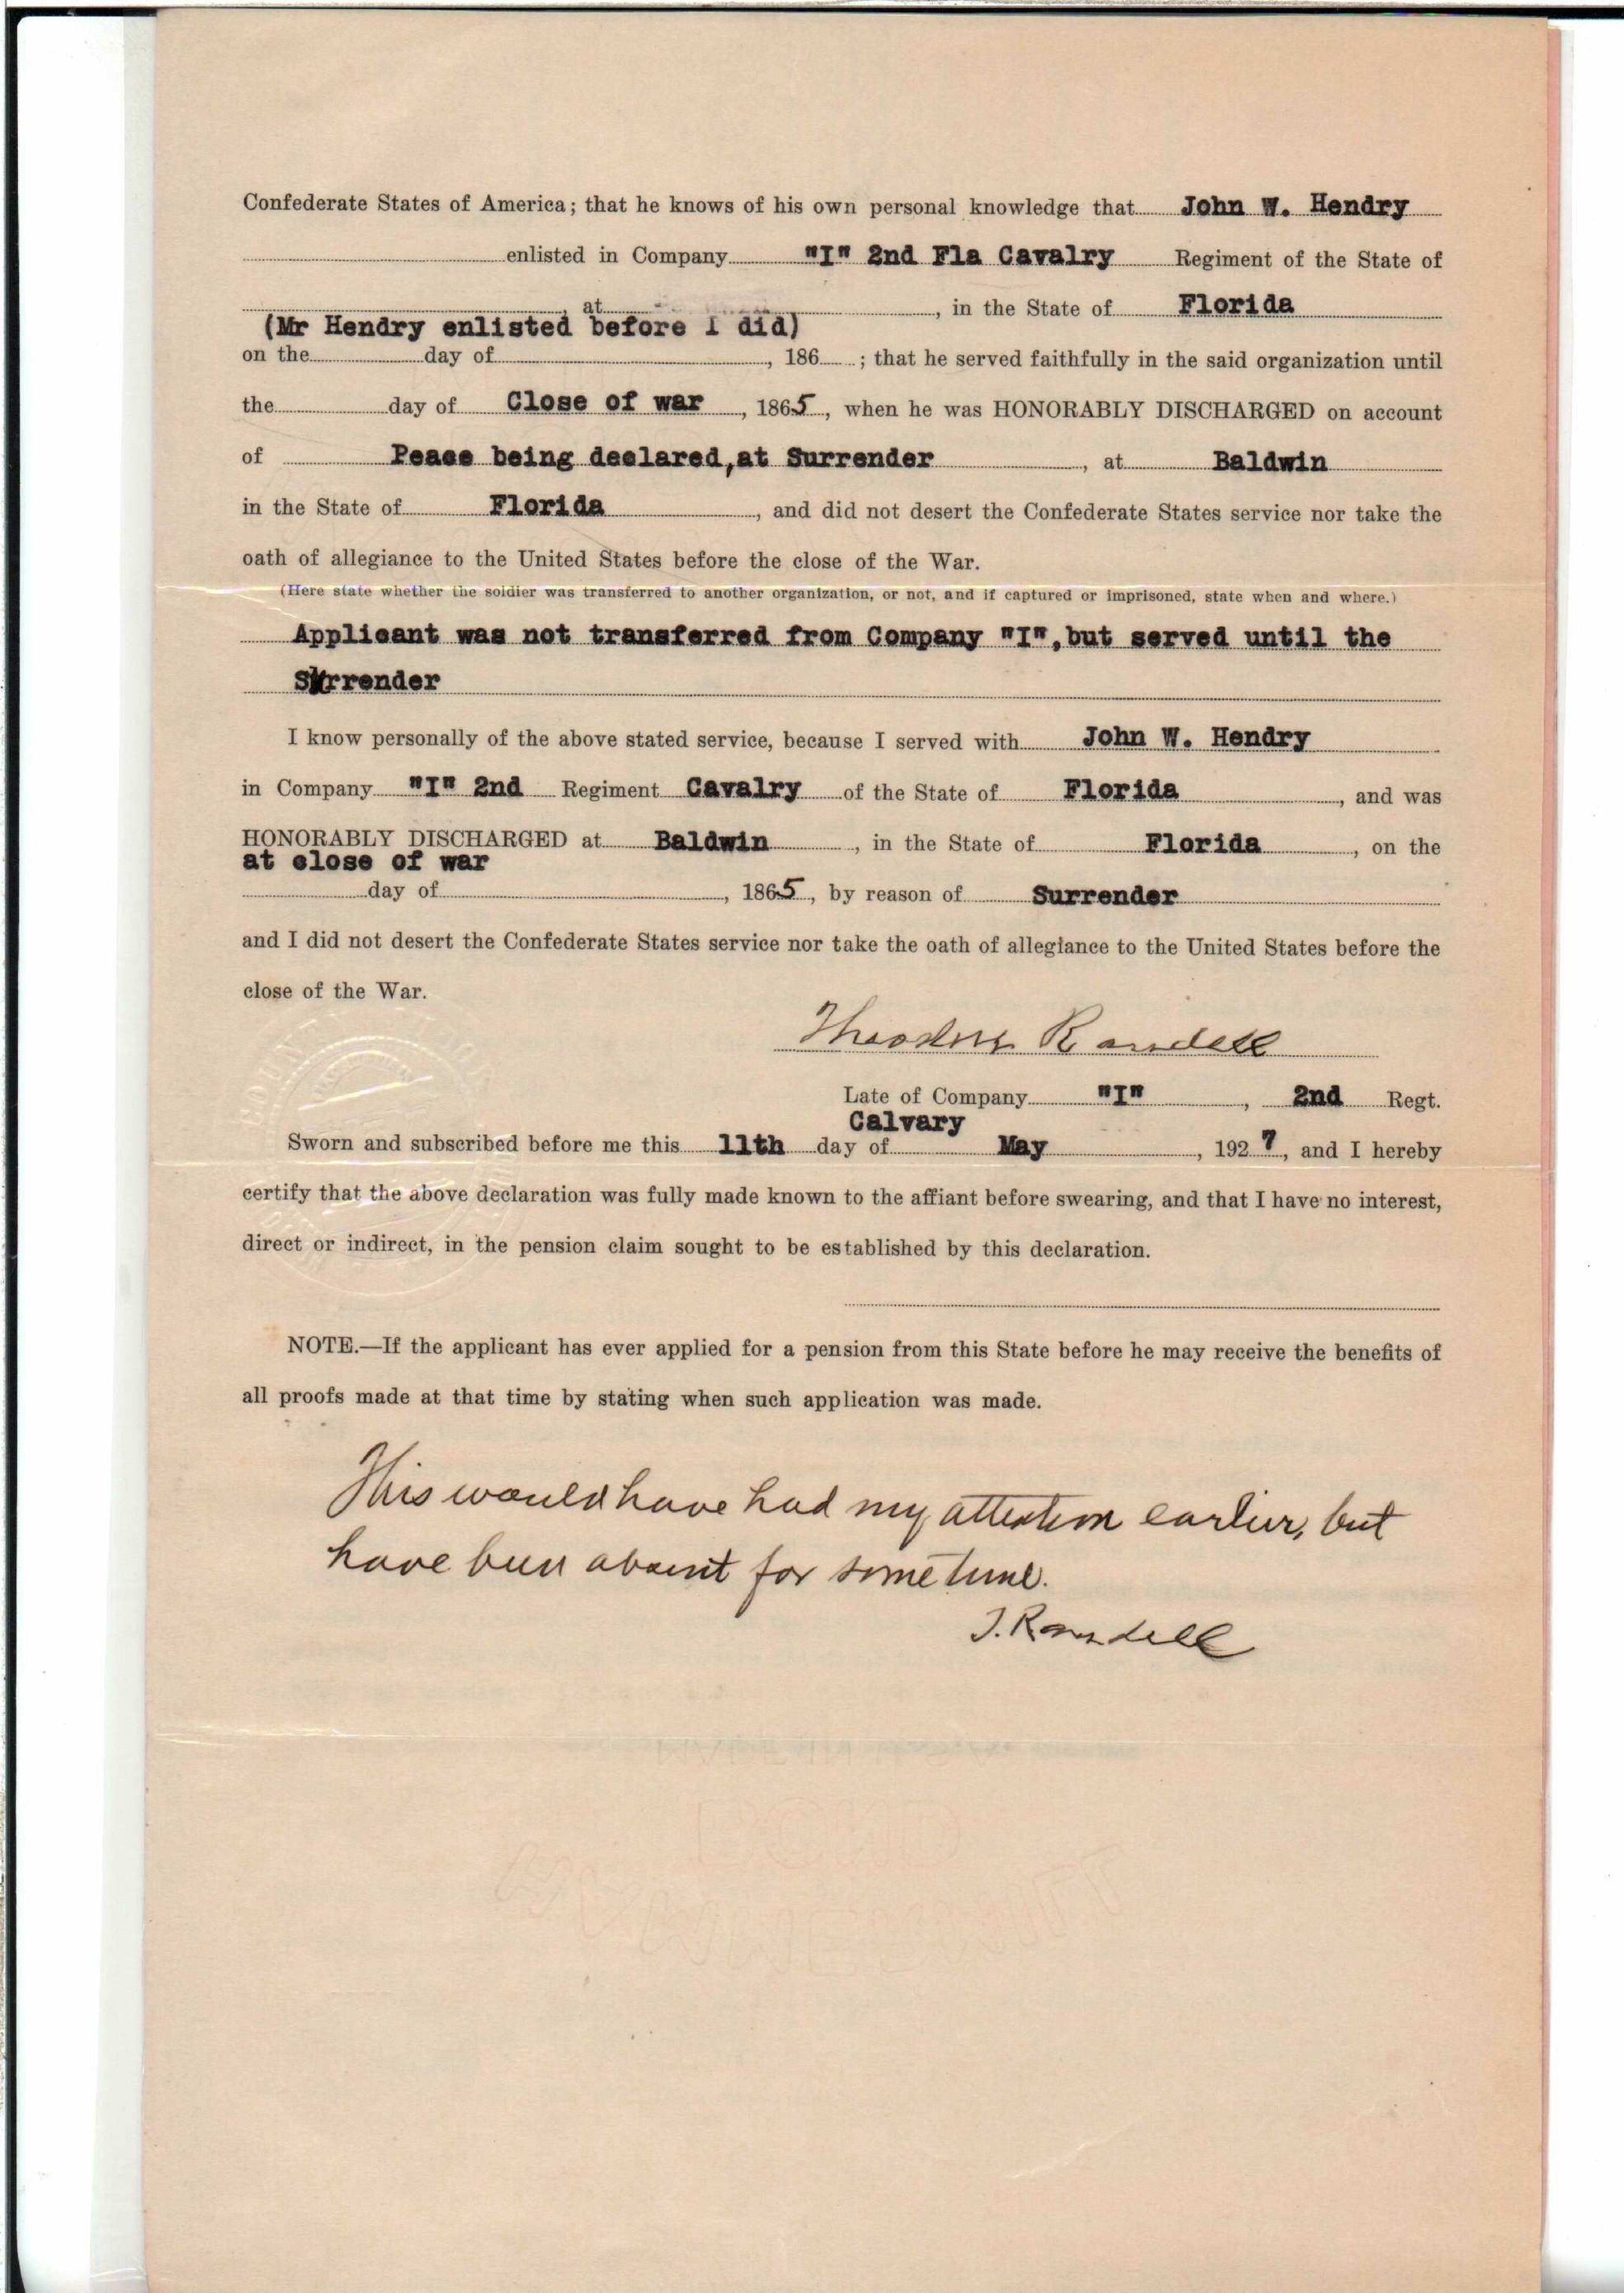 Confederate States of America; that he knows of his own personal knowledge that John W. Hendry
enlisted in Company "I" 2nd Fla Cavalry Regiment of the State of
at , in the State of Florida
(Mr Hendry enlisted before I did)
on the day of , 186 ; that he served faithfully in the said organization until
the day of Close of war , 1865, when he was HONORABLY DISCHARGED on account
of Peace being declared,at Surrender , at Baldwin
in the State of Florida , and did not desert the Confederate States service nor take the
oath of allegiance to the United States before the close of the War.
(Here state whether the soldier was transferred to another organization, or not, and if captured or imprisoned, state when and where.)
Applicant was not transferred from Company "I",but served until the
Surrender
I know personally of the above stated service, because I served with John W. Hendry
in Company "I" 2nd Regiment Cavalry of the State of Florida , and was
HONORABLY DISCHARGED at Baldwin , in the State of Florida , on the
at close of war
day of , 1865, by reason of Surrender
and I did not desert the Confederate States service nor take the oath of allegiance to the United States before the
close of the War.
Theodore Ramdell
Late of Company "I" , 2nd Regt.
Calvary
Sworn and subscribed before me this 11th day of May , 1927, and I hereby
certify that the above declaration was fully made known to the affiant before swearing, and that I have no interest,
direct or indirect, in the pension claim sought to be established by this declaration.
NOTE.—If the applicant has ever applied for a pension from this State before he may receive the benefits of
all proofs made at that time by stating when such application was made.
This would have had my attention earlier, but
have been absent for some time.
T. Ramdell